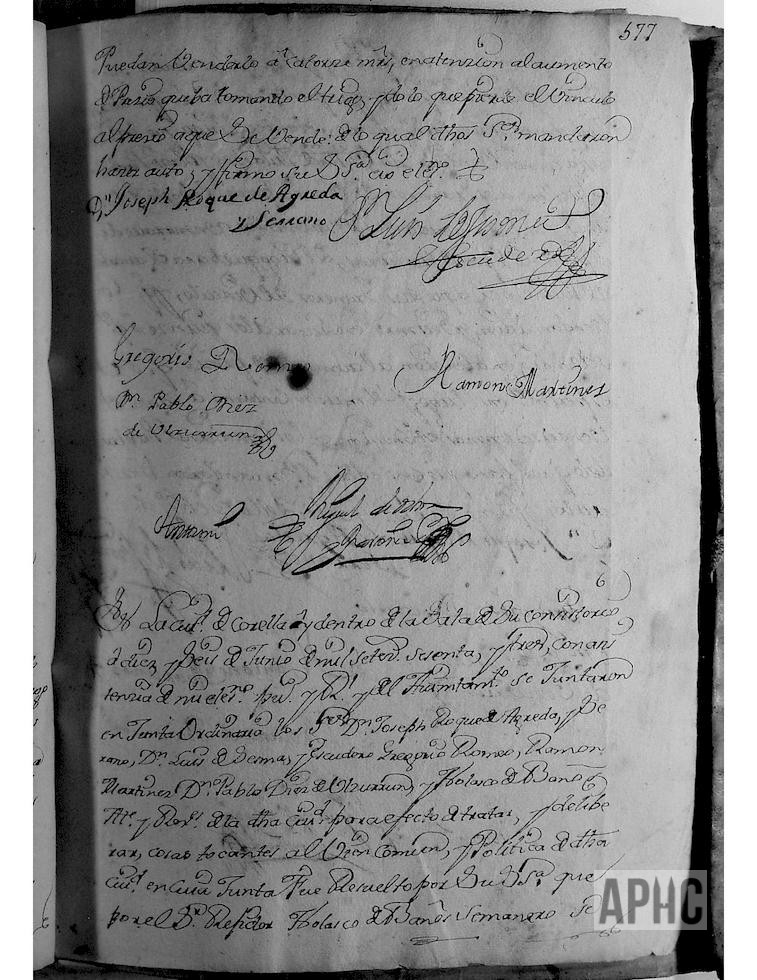 577
Puedan Venderlo a Catorze mrs, en atenzion al aumento
de Prezio que ba tomando el trigo, y de lo que pierde el Vinculo
al prezio a que se Vende: de lo qual dhos Sres mandaron
hazer auto, y firmo su Sa
Dn Joseph Roque de Agreda
y Serrano Dn Luis de Sesma
y Escudero
Gregorio Romeo
Ramon Martinez
Dn Pablo Diez
de Ulzurrun
Antemi Miguel de
En La ciud. de Corella y dentro de la Sala de Su consistorio
a diez y seis de Junio de mil Seten. sesenta, y tres, con asis
tenzia de mi el esno. y del Ayuntamto. Se Juntaron
en Junta Ordinaria los Sres Dn Joseph Roque de Agreda, y Se
rrano, Dn. Luis de Sesma, y Escudero Gregorio Romeo, Ramon
Martinez Dn Pablo Diez de Ulzurrun, y Nolasco de Baños
Alc. y Rexs. de la dha Ciud. para efecto de tratar, y delibe
rar, cosas tocantes al Vien Comun, y Politica de dha
Ciud. en cuia Junta Fue Resuelto por Su Sa. que
por el Sr. Rexidor Nolasco de Baños Semanero Se
APHC